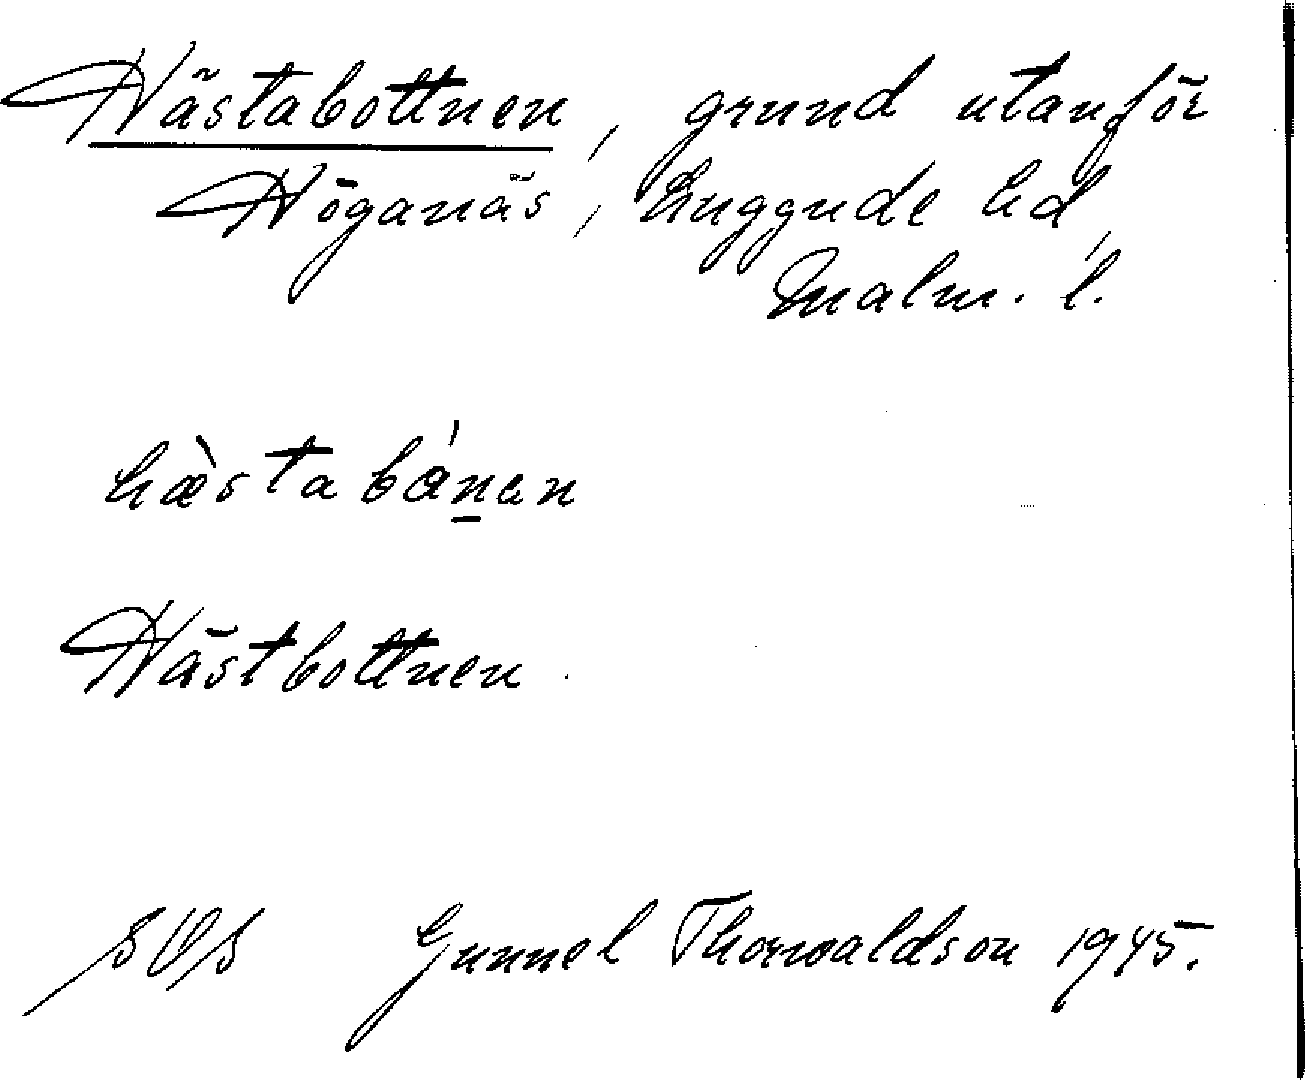 Hästabottnen, grund utanför
Höganäs, Luggude hd,
Malm. l.
hæ̀stabán̲an
Hästbottnen.
SOS Gunnel Thorwaldson 1945.